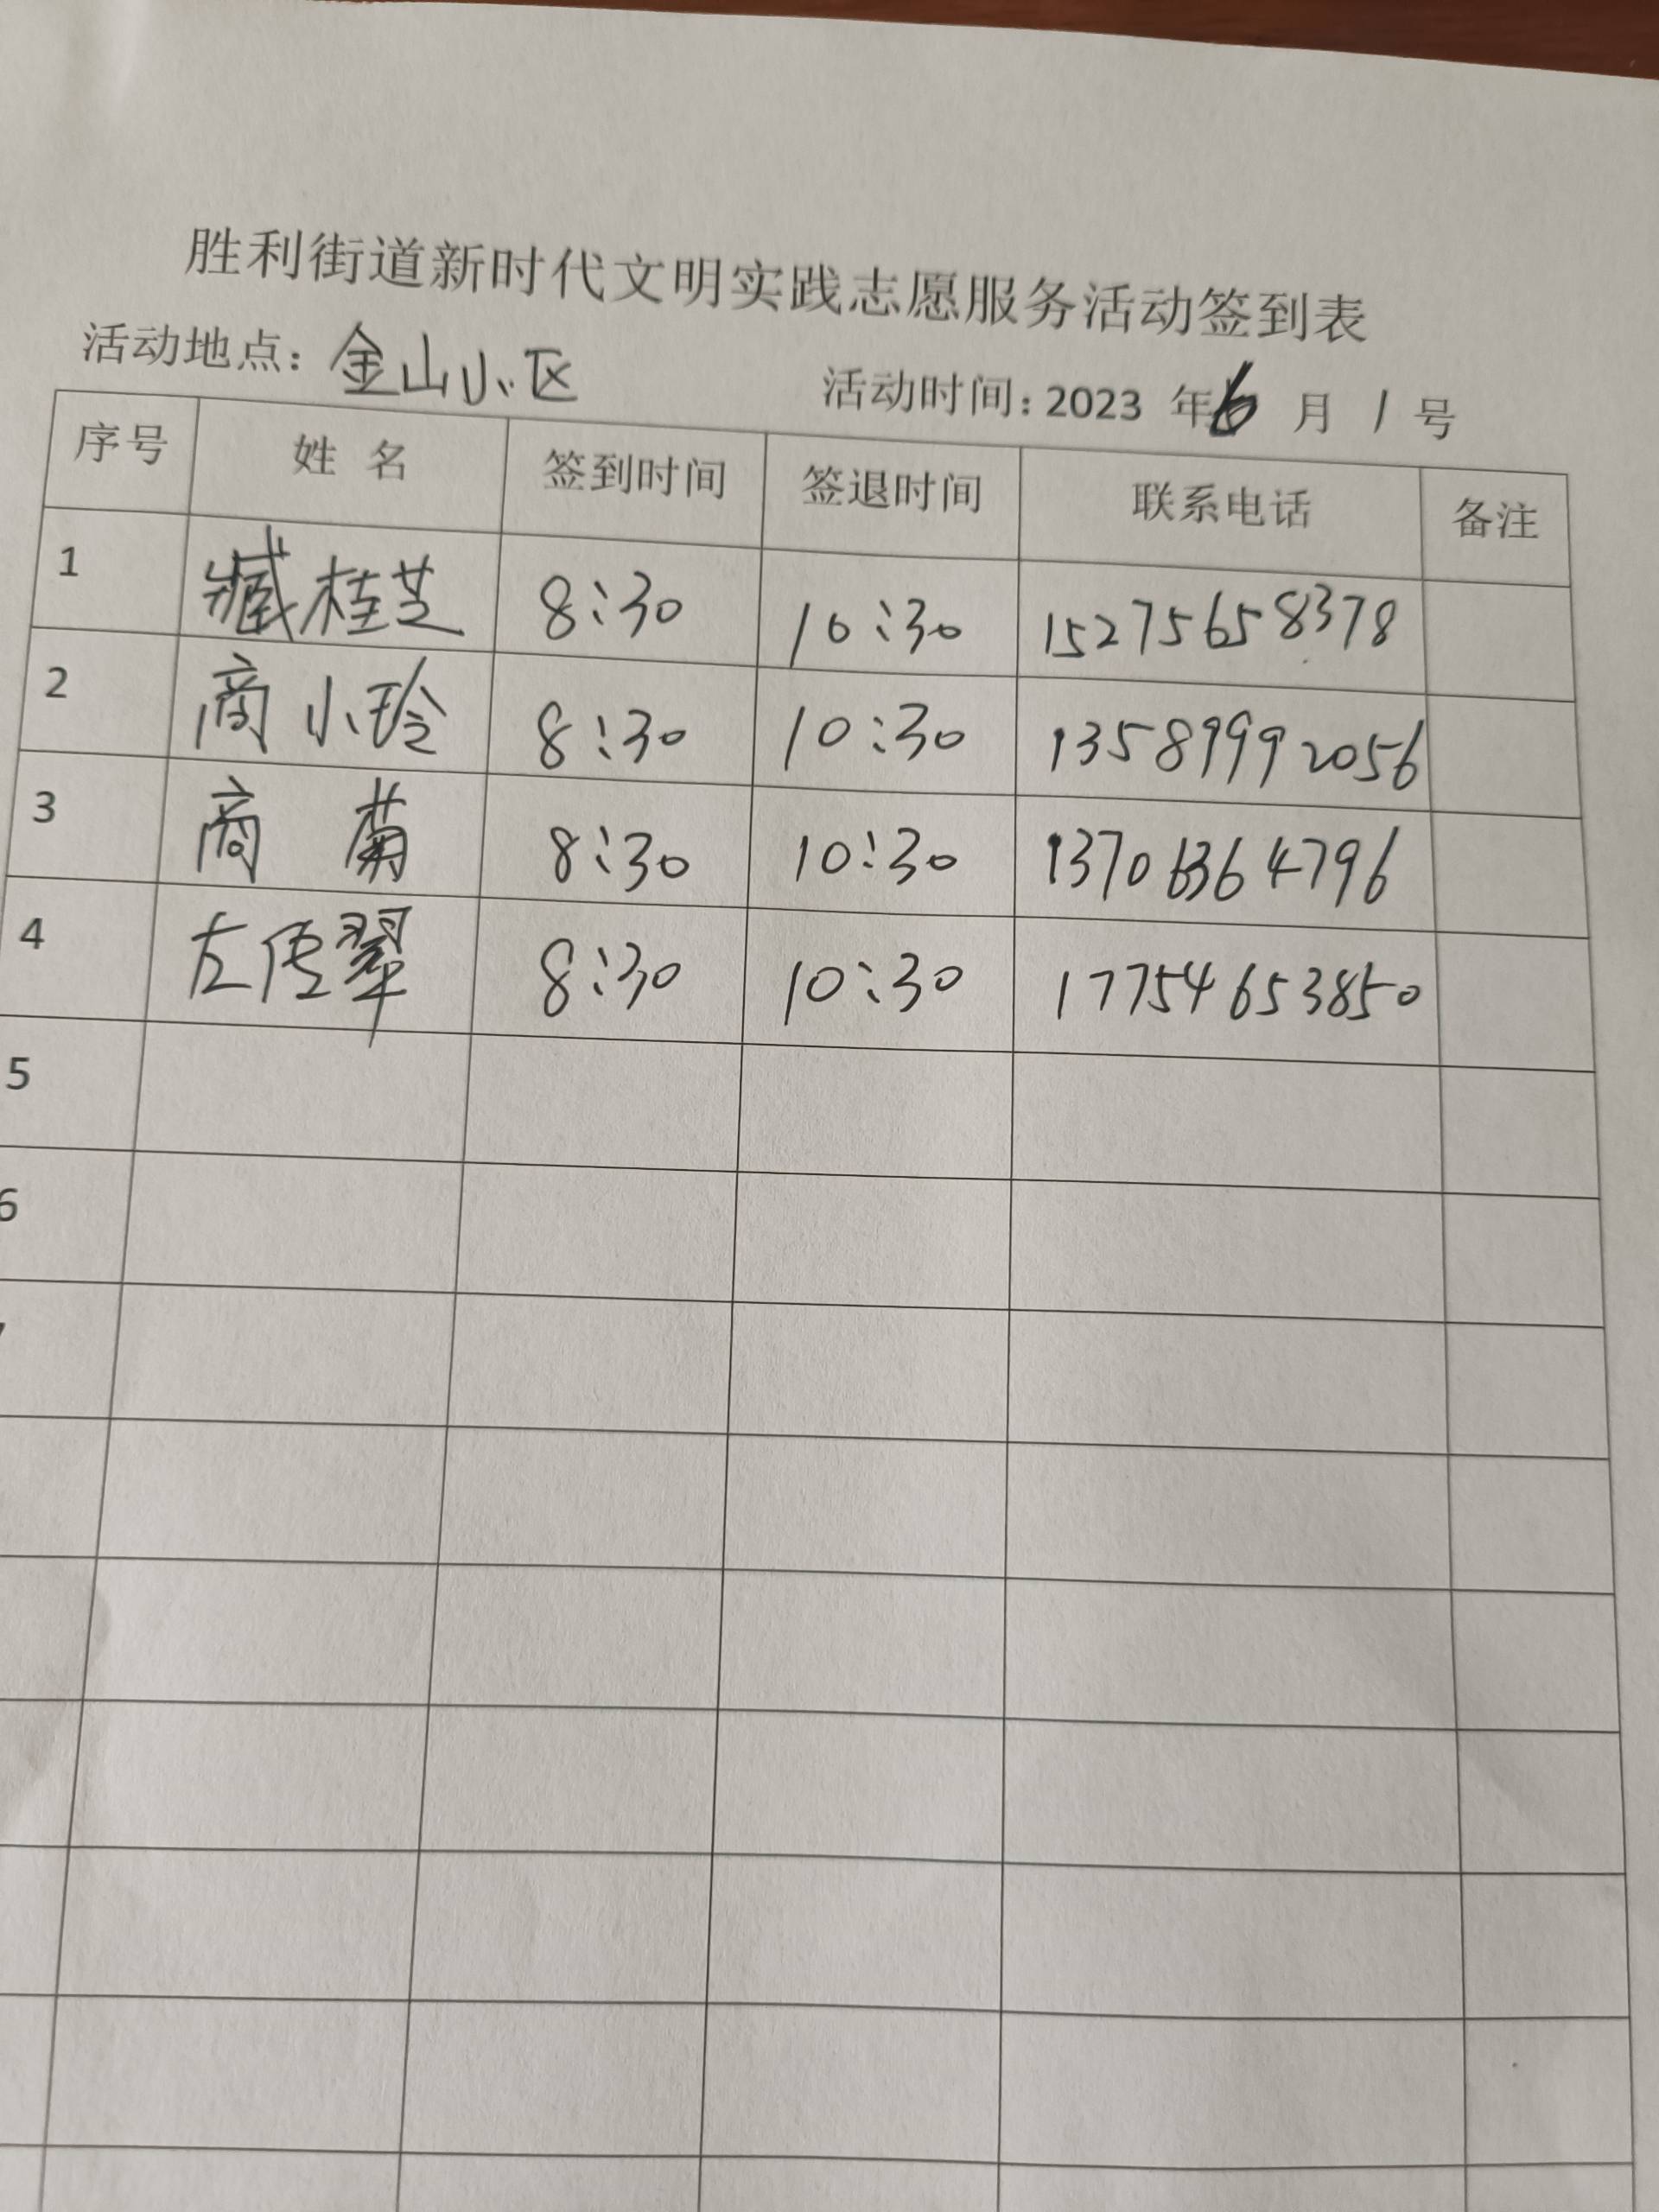 胜利街道新时代文明实践志愿服务活动签到表
活动地点：金山小区 活动时间：2023 年 6 月 1 号
序号 姓 名 签到时间 签退时间 联系电话 备注
1 臧桂芝 8:30 10:30 15275658378
2 商小玲 8:30 10:30 13589992056
3 商 菊 8:30 10:30 13706364796
4 左传翠 8:30 10:30 17754653850
5
6